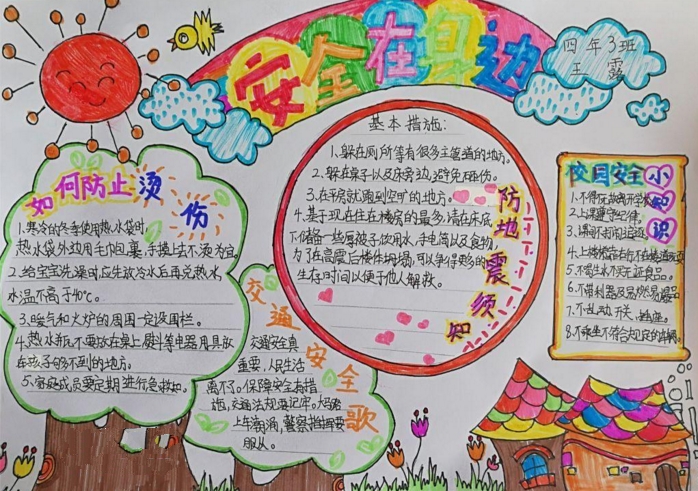 安全在身边
四年3班
王露
如何防止烫伤
1.寒冷的冬季使用热水袋时,
热水袋外边用毛巾包裹,手摸上去不烫为宜。
2.给宝宝洗澡时应先放冷水后再兑热水,
水温不高于40℃。
3.暖气和火炉的周围一定设围栏。
4.热水瓶不要放在桌上,熨斗等电器用具放
在孩子够不到的地方。
5.家庭成员要定期进行急救
交通安全歌
交通安全真
重要,人民生活
离不了。保障安全有措
施,交通法规要记牢。
上车
服从。
基本措施:
1.躲在厕所等有很多主管道的地方。
2.躲在桌子以及床旁边,避免砸伤。
3.在平房就跑到空旷的地方。
4.基于现在住在楼房的最多,请在床底
下储备一些厚被子饮用水,手电筒以及食物,
为了在高震后楼体坍塌,可以争得更多的
生存时间以便于他人解救。
防地震须知
校园安全小知识
2.上课遵守纪律。
3.课间不打闹追逐。
5.不喝生水不买
6.不带利器及易燃易爆品
7.不乱动开关,插座。
8.不乘坐不符合规定的车辆。